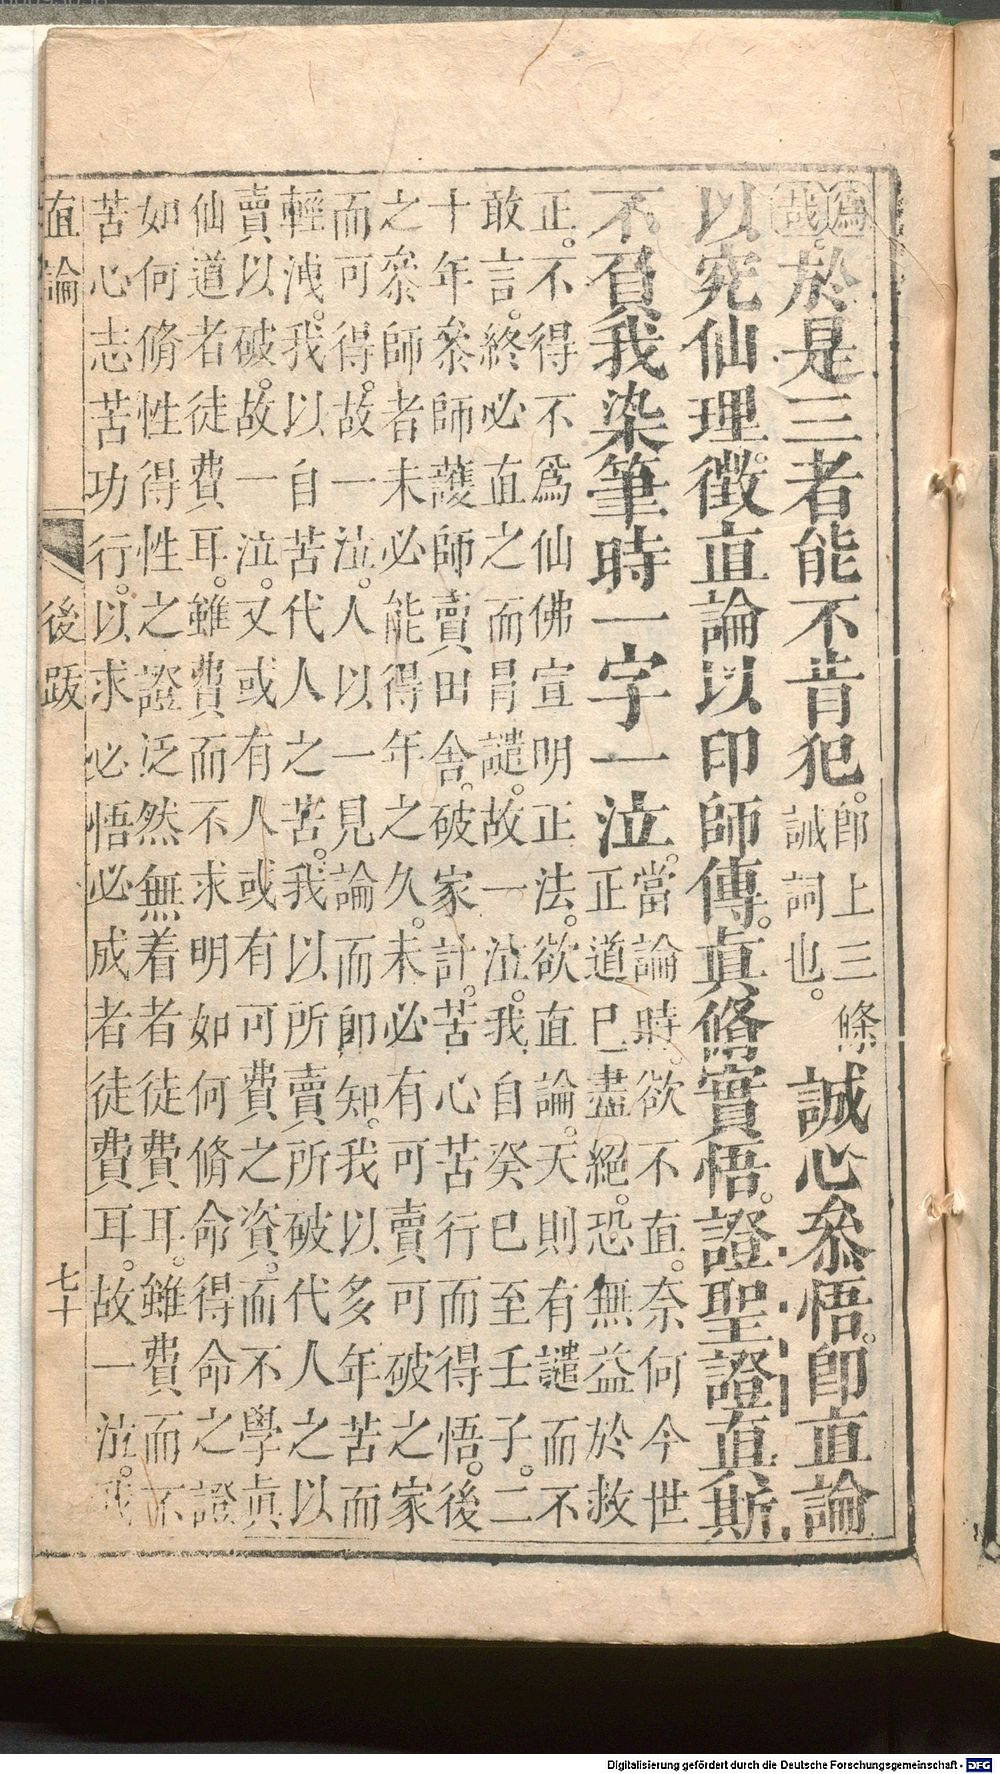 為哉於是三者能不肯犯。即上三條誡詞也。誠心叅悟。即直論
以究仙理。徵直論以印師傳。真脩實悟。證聖證真斯
不負我染筆時一字一泣。當論時。欲不直。奈何今世
正道已盡絕。恐無益於救
正。不得不為仙佛宣明正法。欲直論。天則有譴而不
敢言。終必直之而冐譴。故一泣。我自癸巳至壬子。二
十年叅師護師賣田舍。破家計。苦心苦行而得悟。後
之叅師者未必能得年之久。未必有可賣可破之家
而可得。故一泣。人以一見論而即知。我以多年苦而
輕洩。我以自苦代人之苦。我以所賣所破代人之以
賣以破。故一泣。又或有人或有可費之資。而不學真
仙道者徒費耳。雖費而不求明如何脩命得命之證
如何脩性得性之證泛然無着者徒費耳。雖費而不
苦心志苦功行。以求必悟必成者徒費耳。故一泣。我
直論 後跋 七十
Digitalisierung gefördert durch die Deutsche Forschungsgemeinschaft - DFG